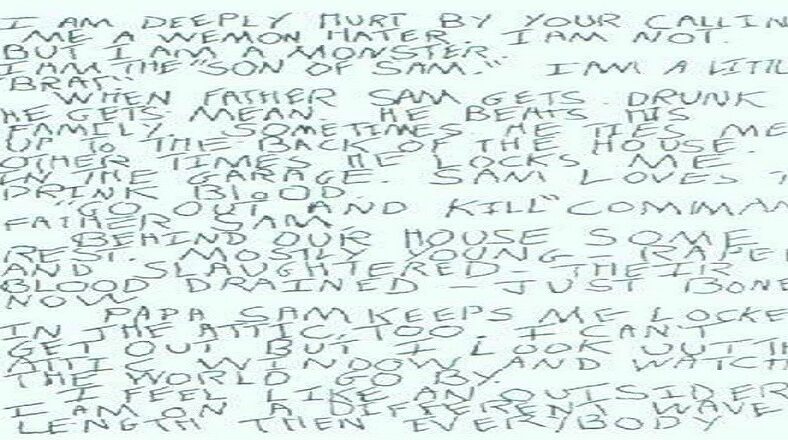 I AM DEEPLY HURT BY YOUR CALLIN
ME A WEMON HATER. I AM NOT.
BUT I AM A MONSTER.
I AM THE "SON OF SAM." I AM A LITTL
"BRAT".
WHEN FATHER SAM GETS DRUNK
HE GETS MEAN. HE BEATS HIS
FAMILY. SOMETIMES HE TIES ME
UP TO THE BACK OF THE HOUSE.
OTHER TIMES HE LOCKS ME
IN THE GARAGE. SAM LOVES T
DRINK BLOOD.
"GO OUT AND KILL" COMMAN
FATHER SAM.
BEHIND OUR HOUSE SOME
REST. MOSTLY YOUNG - RAPE
AND SLAUGHTERED - THEIR
BLOOD DRAINED - JUST BONE
NOW
PAPA SAM KEEPS ME LOCKE
IN THE ATTIC, TOO. I CAN'T
GET OUT BUT I LOOK OUT TH
ATTIC WINDOW AND WATCH
THE WORLD GO BY.
I FEEL LIKE AN OUTSIDER
I AM ON A DIFFERENT WAVE
LENGTH THEN EVERYBODY